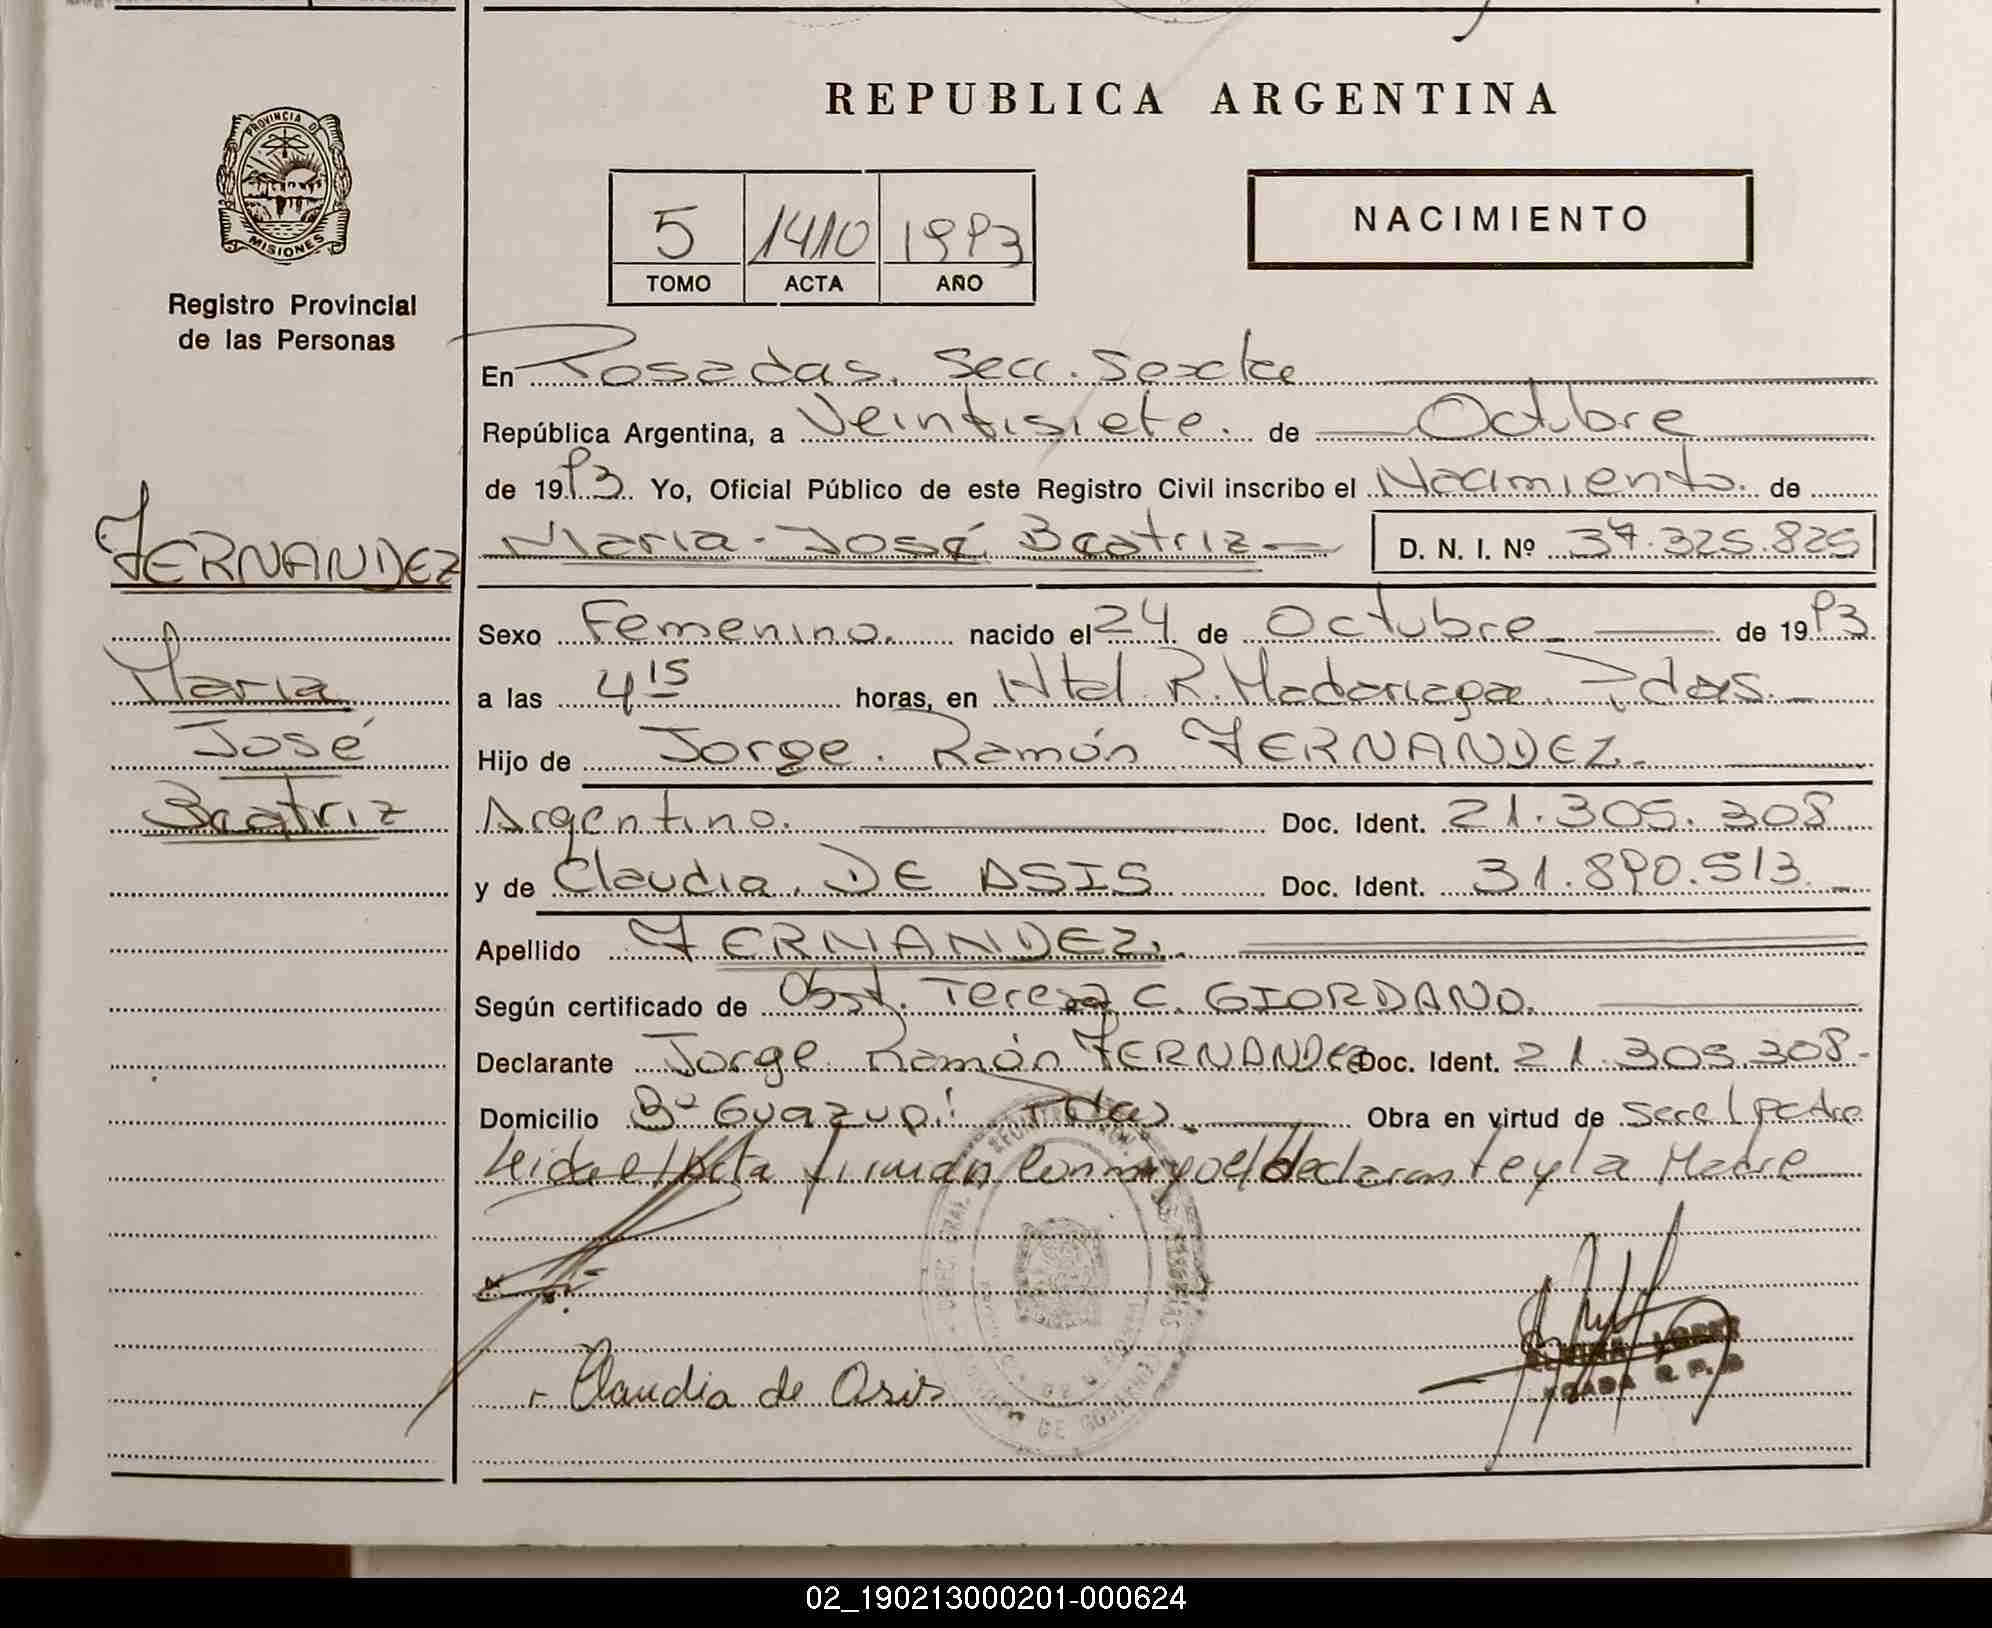 REPUBLICA ARGENTINA
PROVINCIA DE
MISIONES
Registro Provincial
de las Personas
5 1410 1993
TOMO ACTA AÑO
NACIMIENTO
En Posadas. Secc. Sexta
República Argentina, a Veintisiete. de Octubre
de 1993. Yo, Oficial Público de este Registro Civil inscribo el Nacimiento. de
FERNANDEZ
Maria José Beatriz
D. N. I. Nº 37.325.825
Sexo Femenino. nacido el 24 de Octubre de 1993
Maria
a las 4 15 horas, en Htal. R. Madariaga. Pdas.
José
Hijo de Jorge Ramón FERNANDEZ.
Beatriz
Argentino. Doc. Ident. 21.305.308
y de Claudia DE ASIS Doc. Ident. 31.890.513
Apellido FERNANDEZ.
Según certificado de Obst. Teresa C. GIORDANO.
Declarante Jorge Ramón FERNANDEZ Doc. Ident. 21.305.308
Domicilio Bº Guazupí Pdas. Obra en virtud de ser el padre
Leida el Acta firman conmigo el declarante y la Madre
Claudia de Asis
LOPEZ
02_190213000201-000624